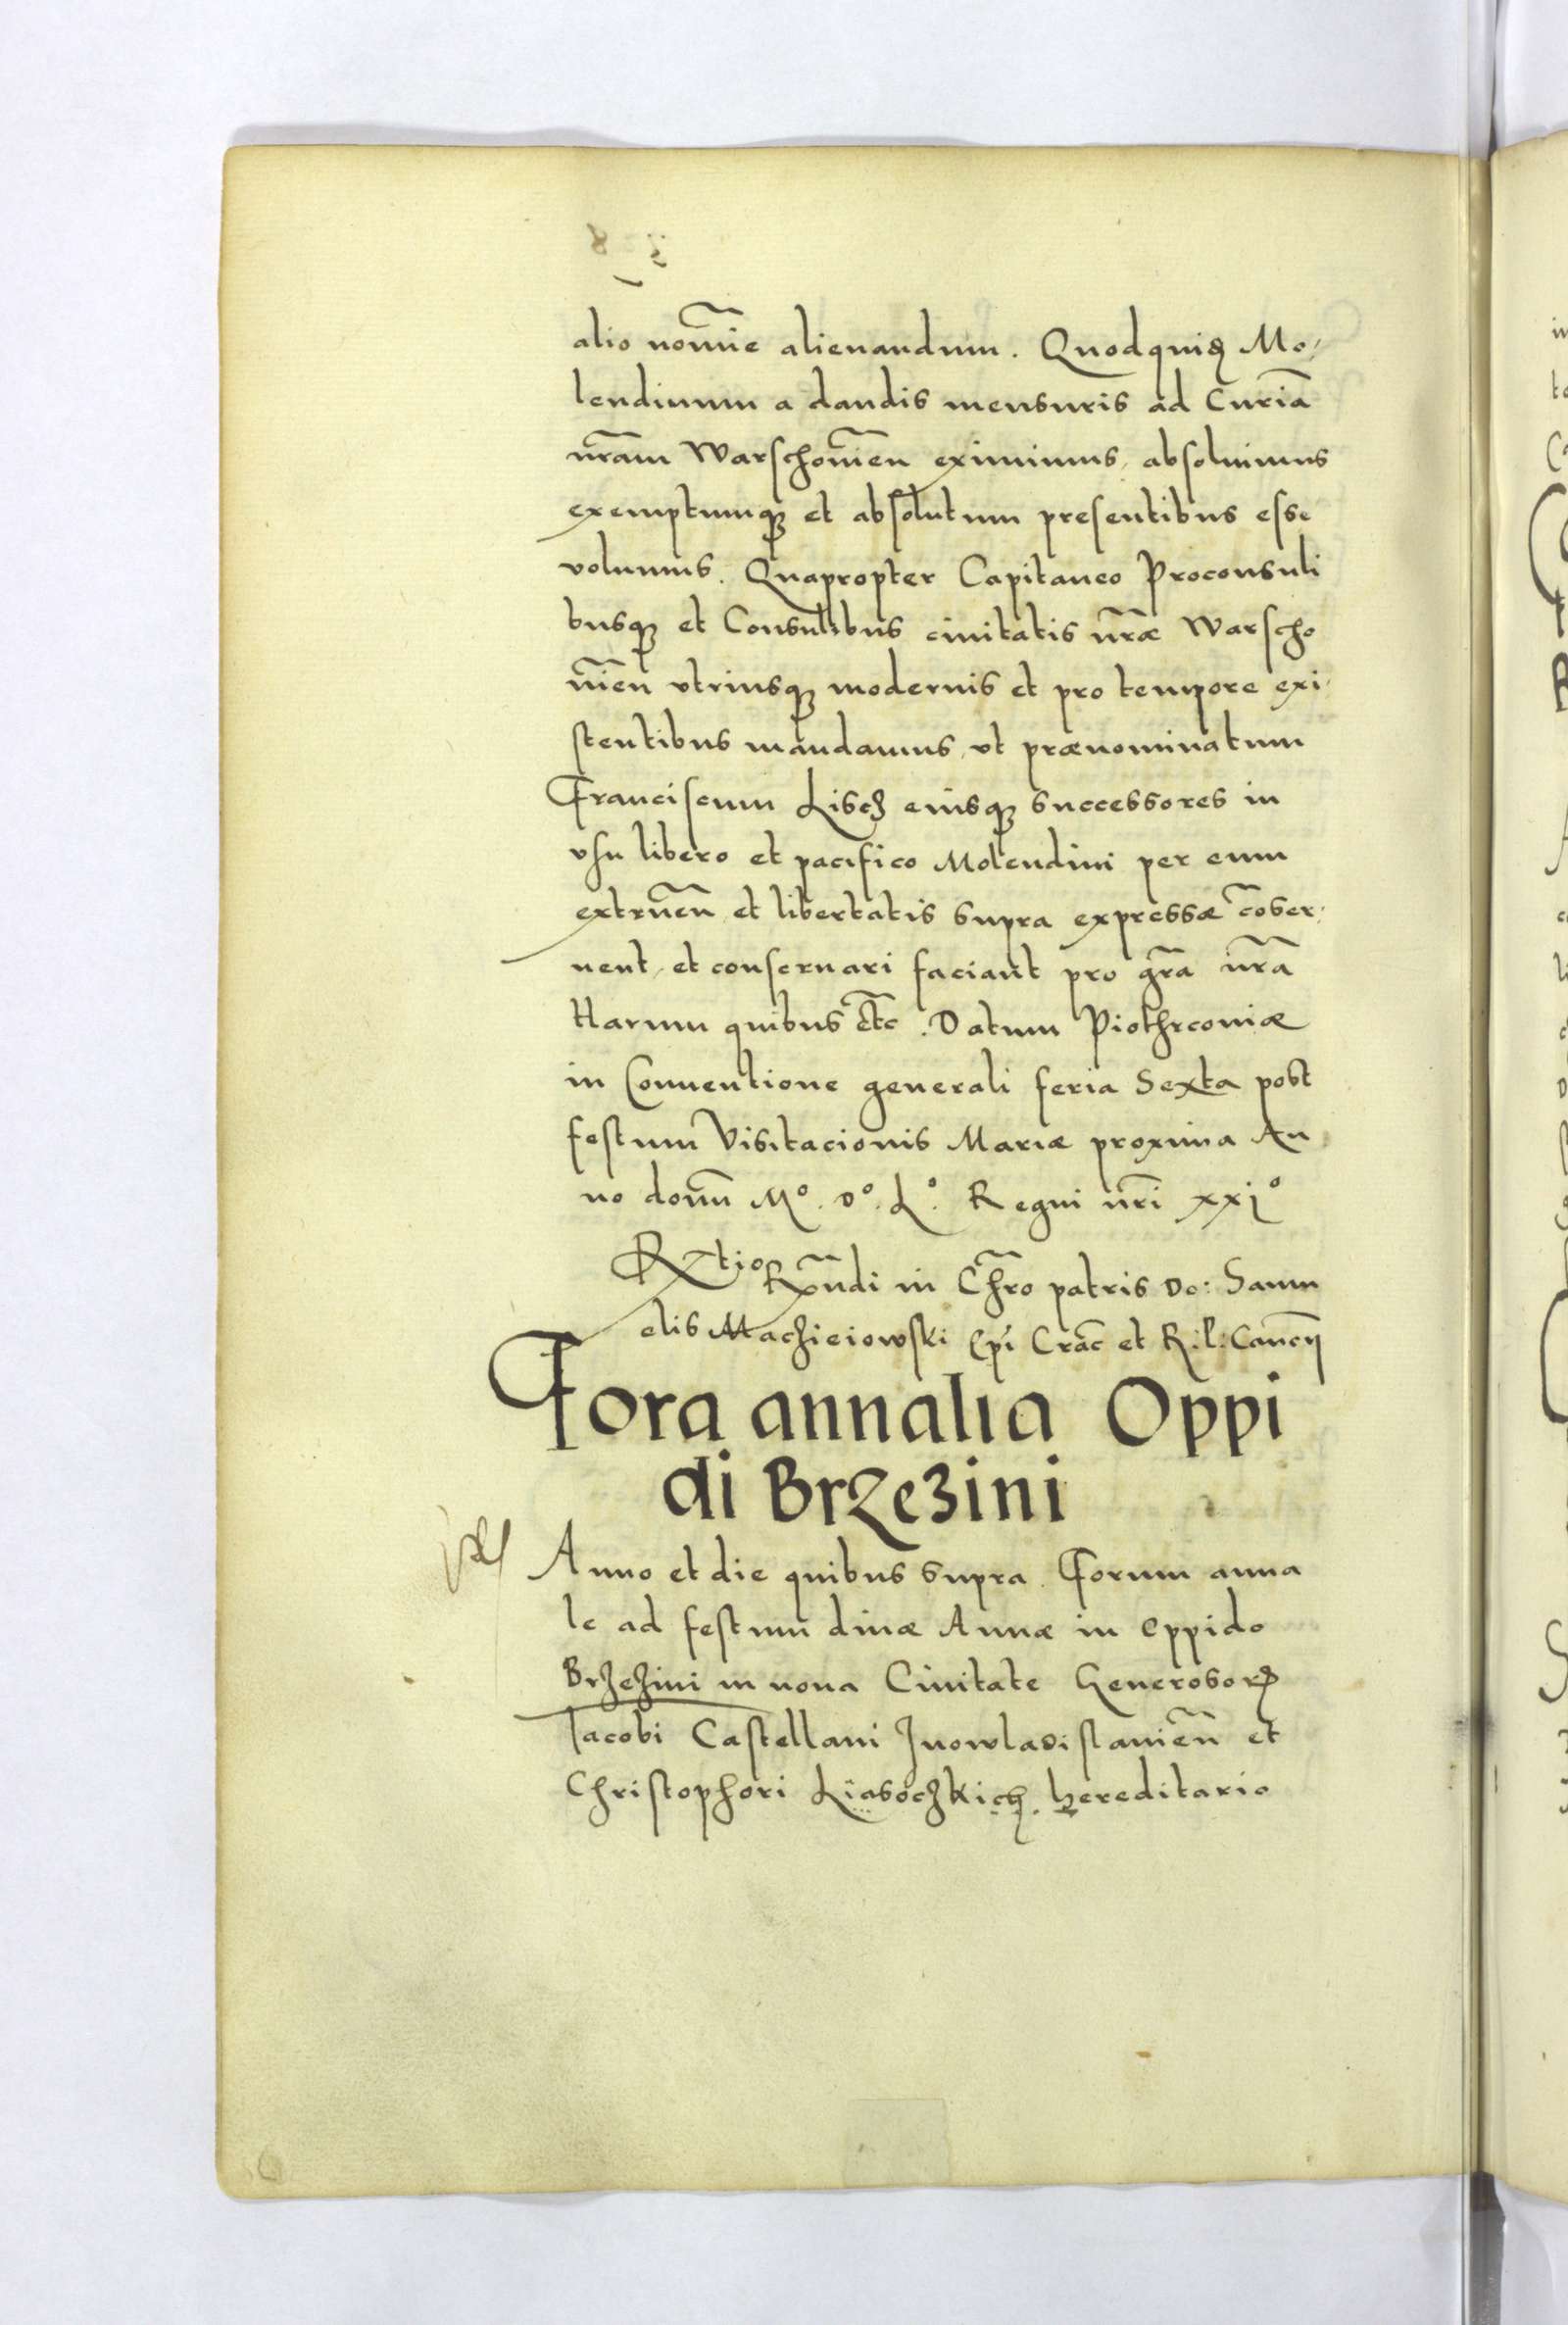 alio nom̃ie alienandum. Quodquidẽ Mo-
lendinum a dandis mensuris ad Curiã
nr̃am Warschouieñ eximimus, absoluimus
exemptumq̧ et absolutum presentibus esse
volumus. Quapropter Capitaneo Proconsuli
busq̧ et Consulibus ciuitatis nr̃æ Warscho
uieñ vtriusq̧ modernis et pro tempore exi-
stentibus mandamus, vt prænominatum
Franciscum Lisch eiusq̧ successores in
vsu libero et pacifico Molendini per eum
extrueñ et libertatis supra expressæ cõser-
uent, et conseruari faciant pro gr̃a nr̃a
Harum quibus etc̃. Datum Piothrconiæ
in Conuentione generali feria Sexta post
festum Visitacionis Mariæ proxima An
no domĩ Mº. Dº. Lº. Regni nr̃i xxjº
Rx̃tio Rx̃ndi in Chr̃o patris Do: Samu
elis Maczieiowski Ep̃i Crac̃ et R: P: Canc̃ij
Fora annalia Oppi
di Brzezini
Anno et die quibus supra. Forum anna
le ad festum diuæ Annæ in Oppido
Brzezini in noua Ciuitate Generosorꝝ
Jacobi Castellani Jnowladislauieñ et
Christophori Liasoczkich. hereditario